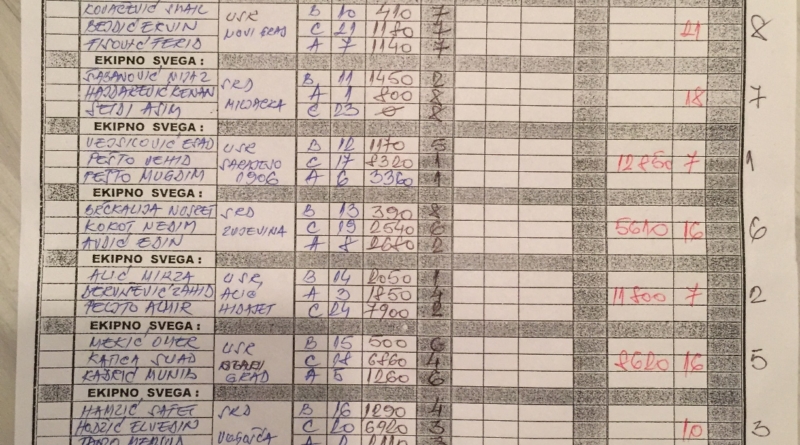 KOVAČEVIĆ ISMAIL USR B 10 410 7
BEJDIĆ ERVIN NOVI GRAD C 21 1180 7 21 8
FISOVIĆ FERID A 7 1140 7
EKIPNO SVEGA :
ŠABANOVIĆ NIJAZ SRD B 11 1450 2
HAJDAREVIĆ KENAN MILJACKA A 1 800 8 18 7
SEJDI ASIM C 23 8
EKIPNO SVEGA :
VEJSILOVIĆ ESAD USR B 12 1170 5
PEŠTO VEHID SARAJEVO C 17 8320 1 12850 7 1
PEŠTO MUGDIM 1906 A 6 3360 1
EKIPNO SVEGA :
BRČKALIJA NUSRET SRD B 13 390 8
KOKOT NEDIM ZUJEVINA C 19 2540 6 5610 16 6
AVDIĆ EDIN A 8 2680 2
EKIPNO SVEGA :
ALIĆ MIRZA USR B 14 2050 1
ZAHID ALIĆ A 3 1850 4 11800 7 2
PECIŠTO ALMIR HIDAJET C 24 7900 2
EKIPNO SVEGA :
MEKIĆ OMER USR B 15 500 6
KAPICA SUAD STARI C 18 6860 4 8620 16 5
KADRIĆ MUNIB GRAD A 5 1260 6
EKIPNO SVEGA :
HAMZIĆ SAFET SRD B 16 1290 4
HODŽIĆ ELVEDIN C 20 6920 3 10 3